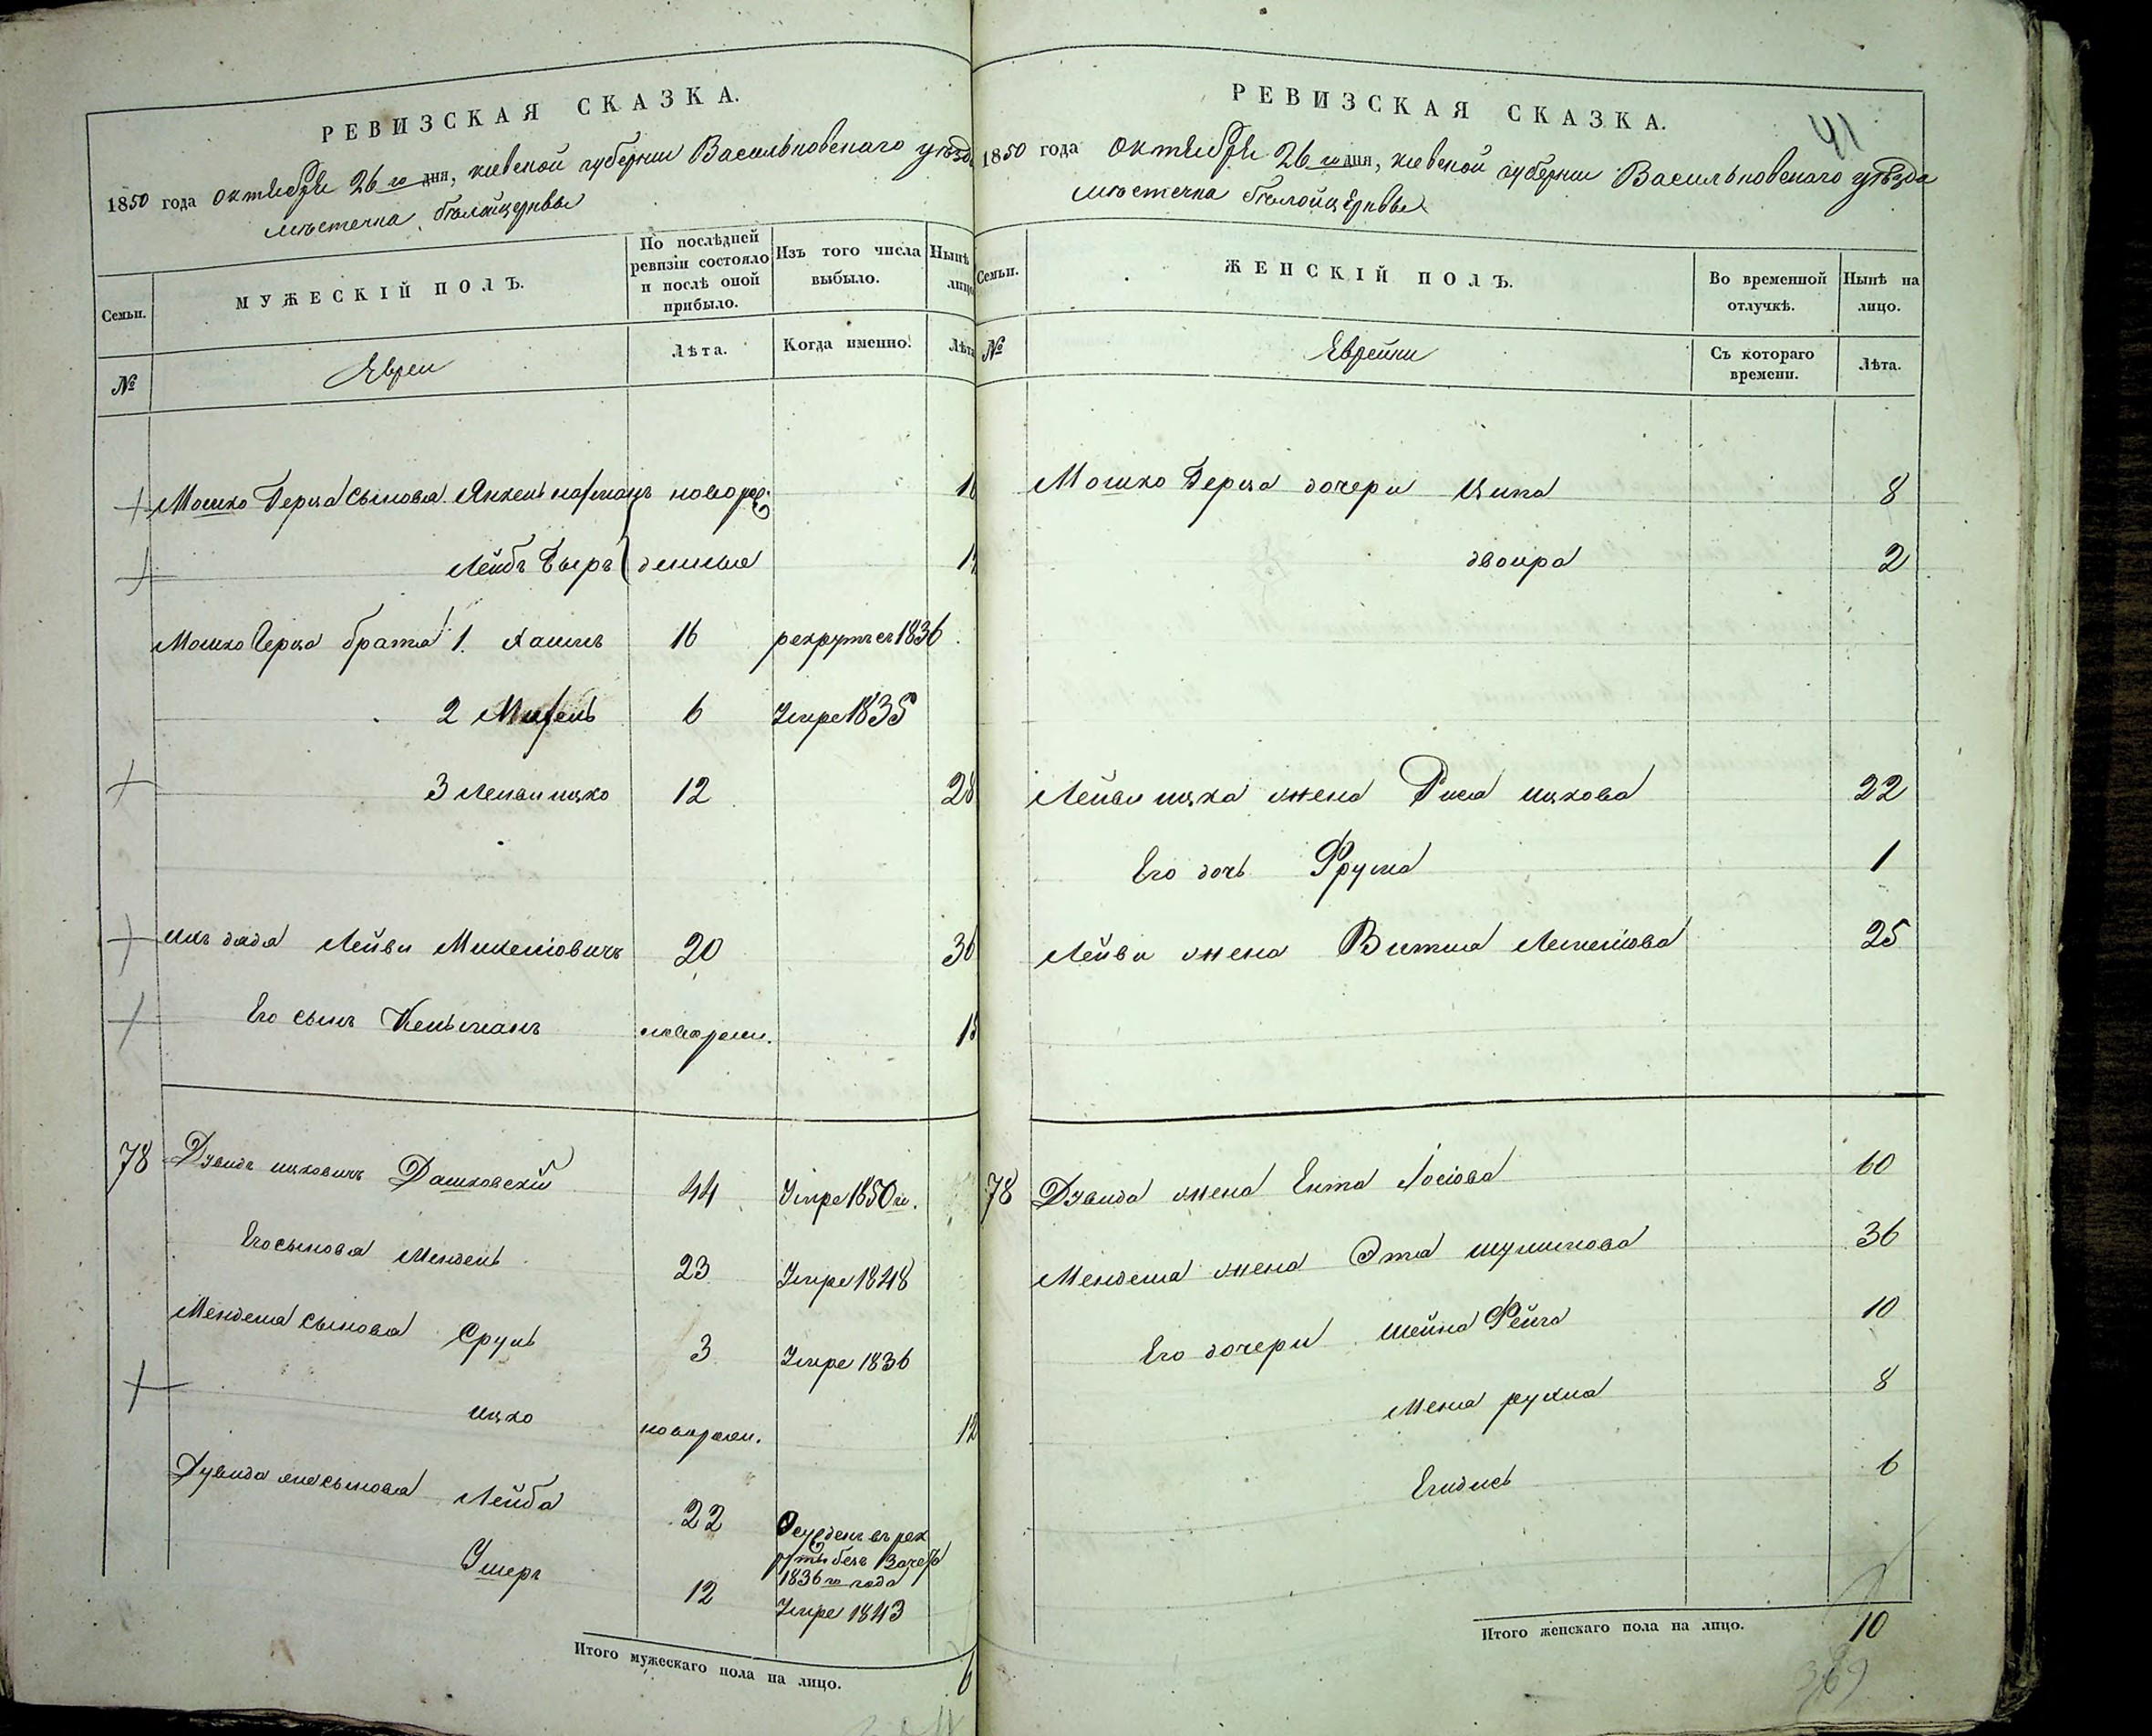 РЕВИЗСКАЯ СКАЗКА.
1850 года октября 26 го дня, киевской губернии Васильковскаго уезда
местечка белойцеркви
Семьи.
МУЖЕСКІЙ ПОЛЪ.
По послѣдней ревизіи состояло и послѣ оной прибыло.
Изъ того числа выбыло.
Нынѣ лицо
№
Евреи
Лѣта.
Когда именно.
Лѣта
Мошко Герша сыновя Янкель нафманъ новорож-
Лейбъ Беръ денные
Мошко Герша братя 1. Хаимъ 16 рекрутъ съ 1836
2 Михель 6 Умре 1835
3 Лейви ицко 12 28
ихъ дядя Лейви Михеліовичъ 20 36
Его сынъ Кельманъ новорожн.
78 Дувидъ ицковичъ Дашковскій 44 Умре 1850 го.
Его сыновя Мендель 23 Умре 1848
Менделя сыновя Сруль 3 Умре 1836
ицко новорожн. 12
Дувида сыновя Лейба 22 въ рек
руты безъ зачета
1836 го года
Ушеръ 12 Умре 1843
Итого мужескаго пола на лицо. 6
41
РЕВИЗСКАЯ СКАЗКА.
1850 года октября 26 го дня, киевской губернии Васильковскаго уѣзда
мѣстечка белойцеркви
Семьи.
ЖЕНСКІЙ ПОЛЪ.
Во временной отлучкѣ.
Нынѣ на лицо.
№
Еврейки
Съ котораго времени.
Лѣта.
Мошко Герша дочери Ципа 8
двойра 2
Лейви ицка жена Рися ицкова 22
Его дочь Фрума 1
Лейви жена Витля 25
78 Дувида жена Ента Іосіова 60
Менделя жена Эта шулимова 36
Его дочери шейна Фейга 10
Меня рухля 8
Ендись 6
Итого женскаго пола на лицо. 10